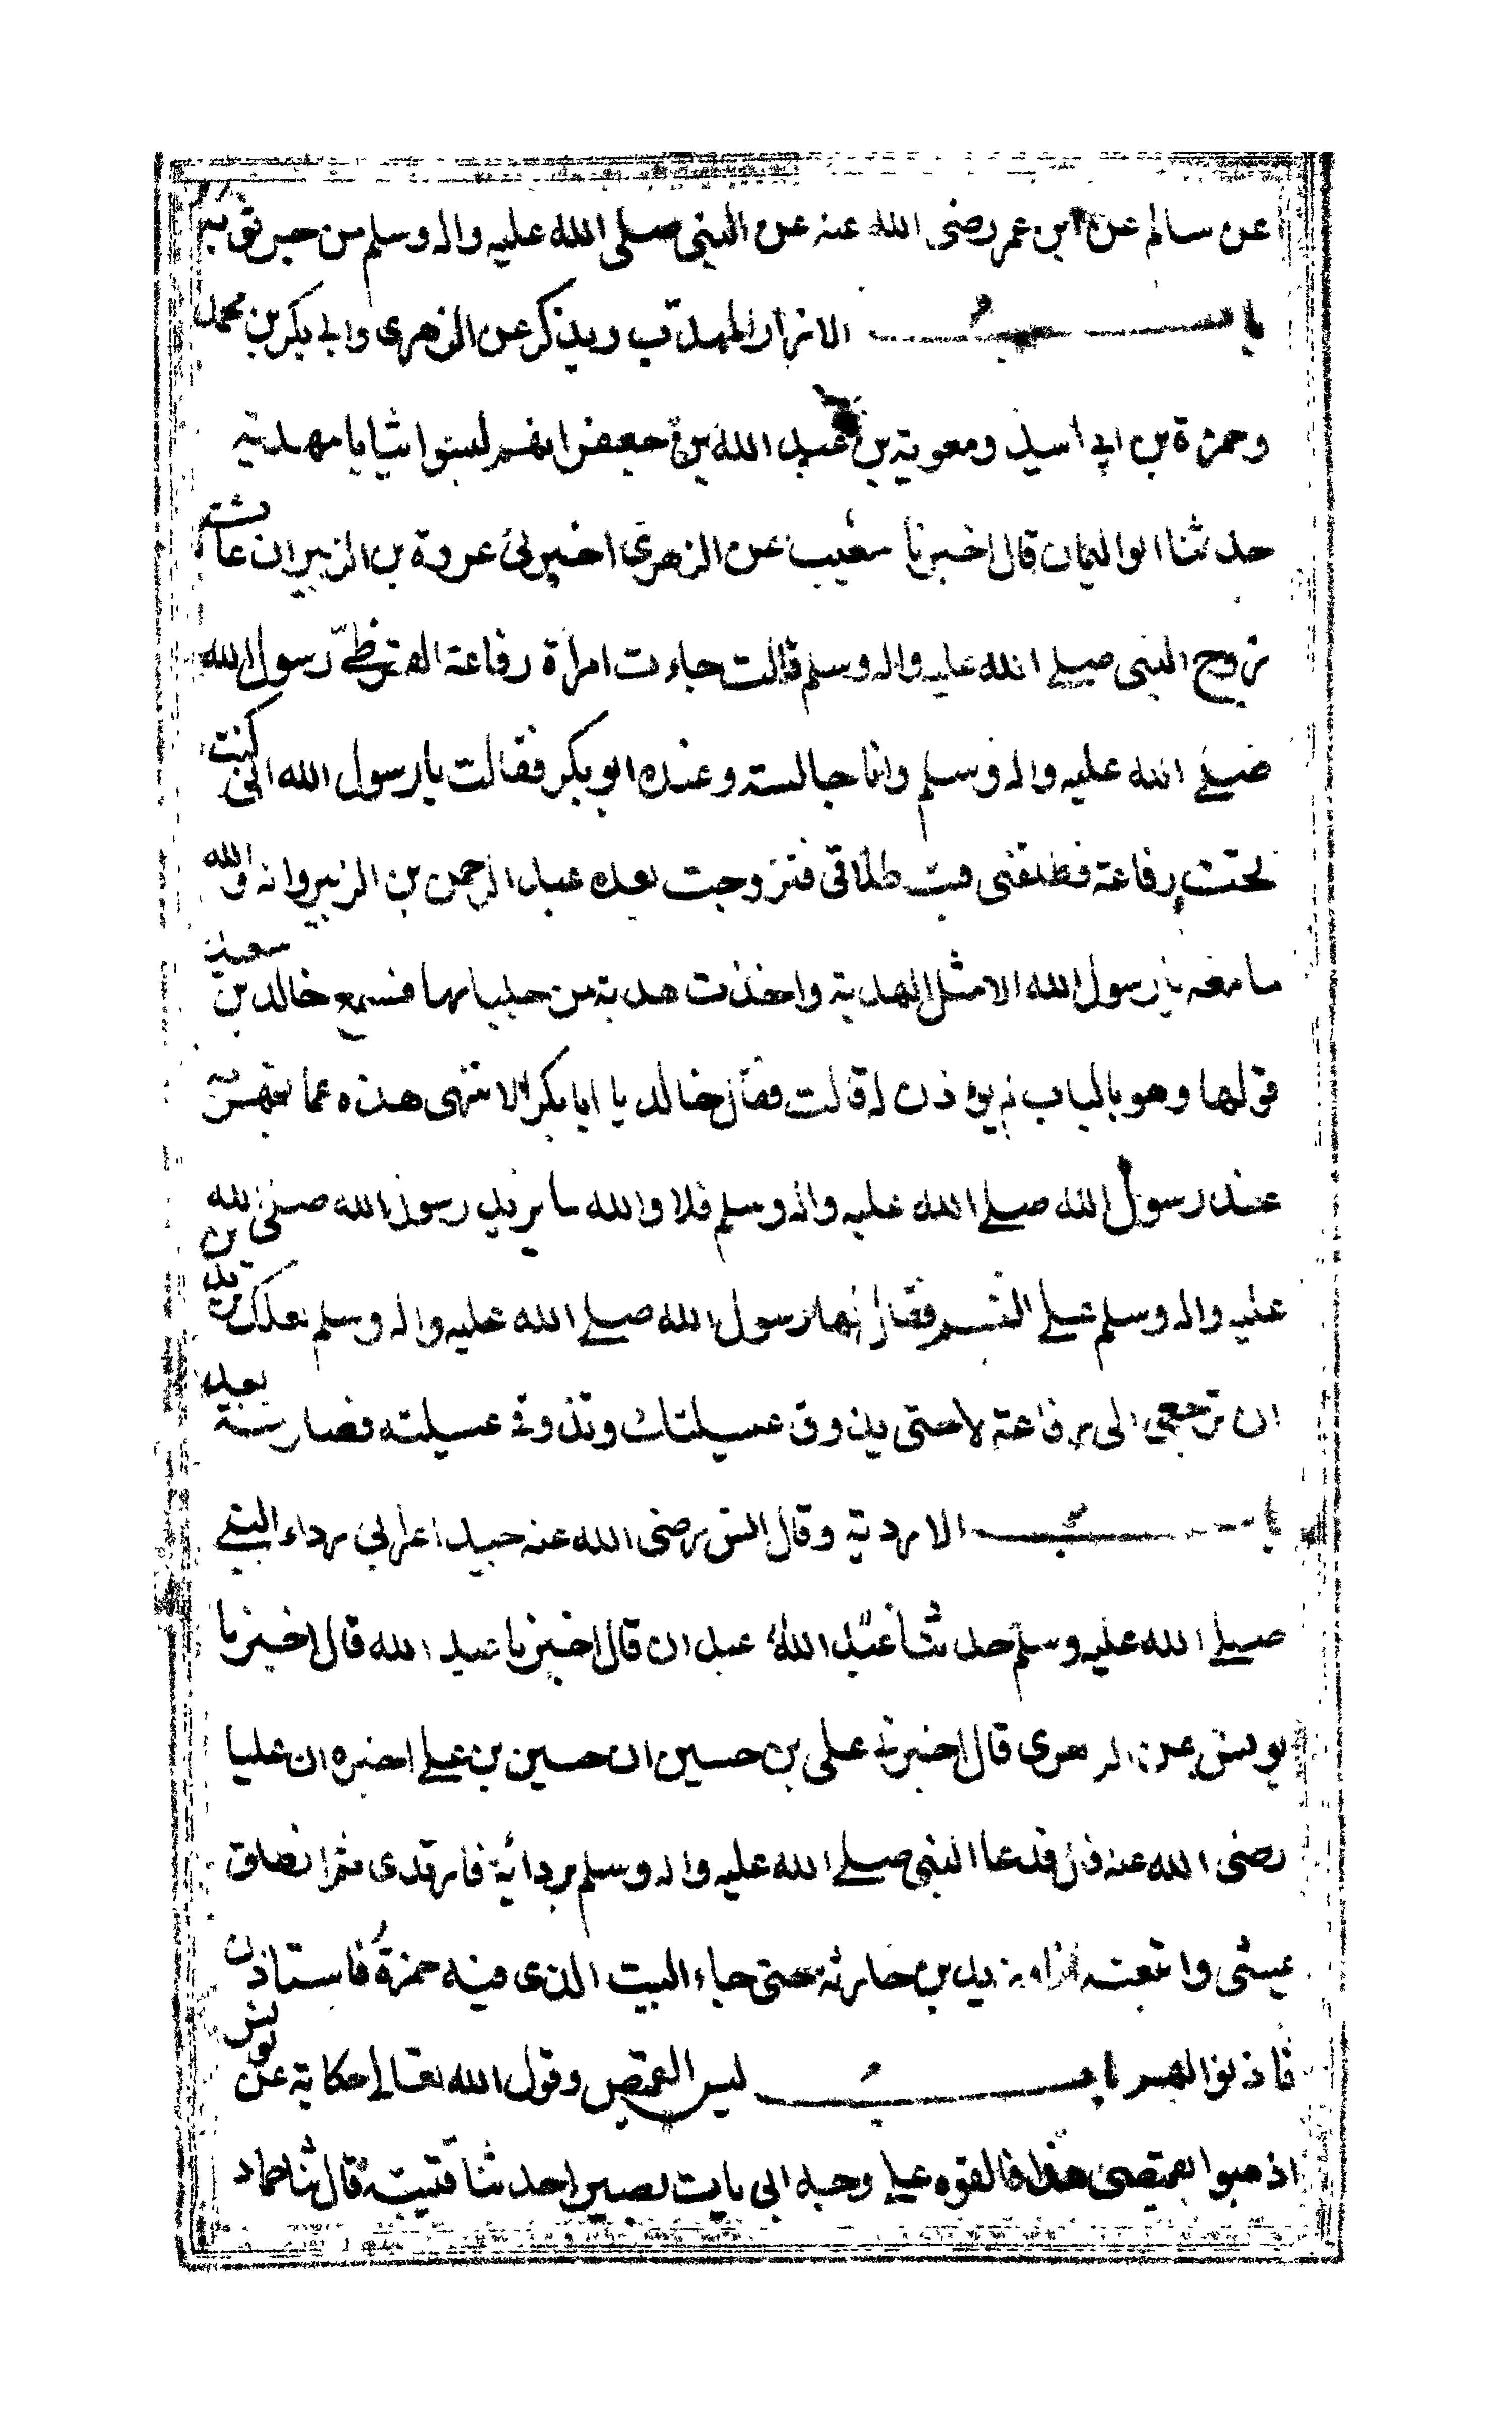 عن سالم عن ابن عمر رضى الله عنه عن النبى صلى الله عليه واله وسلم من جر ثوبه
باب الازار المهدب ويذكر عن الزهرى وابى بكر بن محمد
وحمزة بن ابى اسيد ومعوية بن عبد الله بن جعفر انهم لبسوا ثيابا مهدبة
حدثنا ابو اليمان قال اخبرنا شعيب عن الزهرى اخبرنى عروة بن الزبير ان عائشة
زوج النبى صلى الله عليه واله وسلم قالت جاءت امرأة رفاعة القرظى رسول الله
صلى الله عليه واله وسلم وانا جالسة وعنده ابو بكر فقالت يا رسول الله انى كنت
تحت رفاعة فطلقنى فبت طلاقى فتزوجت بعده عبد الرحمن بن الزبير وانه والله
ما معه يا رسول الله الا مثل الهدبة واخذت هدبة من جلبابها فسمع خالد بن سعيد
قولها وهو بالباب لم يؤذن له قالت فقال خالد يا ابا بكر الا تنهى هذه عما تجهر به
عند رسول الله صلى الله عليه واله وسلم فلا والله ما يزيد رسول الله صلى الله
عليه واله وسلم على التبسم فقال لها رسول الله صلى الله عليه واله وسلم لعلك تريدين
ان ترجعى الى رفاعة لا حتى يذوق عسيلتك وتذوقى عسيلته فصار سنة بعده
باب الاردية وقال انس رضى الله عنه جبذ اعرابى رداء النبى
صلى الله عليه وسلم حدثنا عبد الله عبدان قال اخبرنا عبد الله قال اخبرنا
يونس عن الزهرى قال اخبرنى على بن حسين ان حسين بن على اخبره ان عليا
رضى الله عنه قال فدعا النبى صلى الله عليه واله وسلم بردائه فارتدى ثم انطلق
يمشى واتبعته انا وزيد بن حارثة حتى جاء البيت الذى فيه حمزة فاستاذن
فاذنوا لهم باب لبس القميص وقول الله تعالى حكاية عن يوسف
اذهبوا بقميصى هذا فالقوه على وجه ابى يات بصيرا حدثنا قتيبة قال ثنا حماد